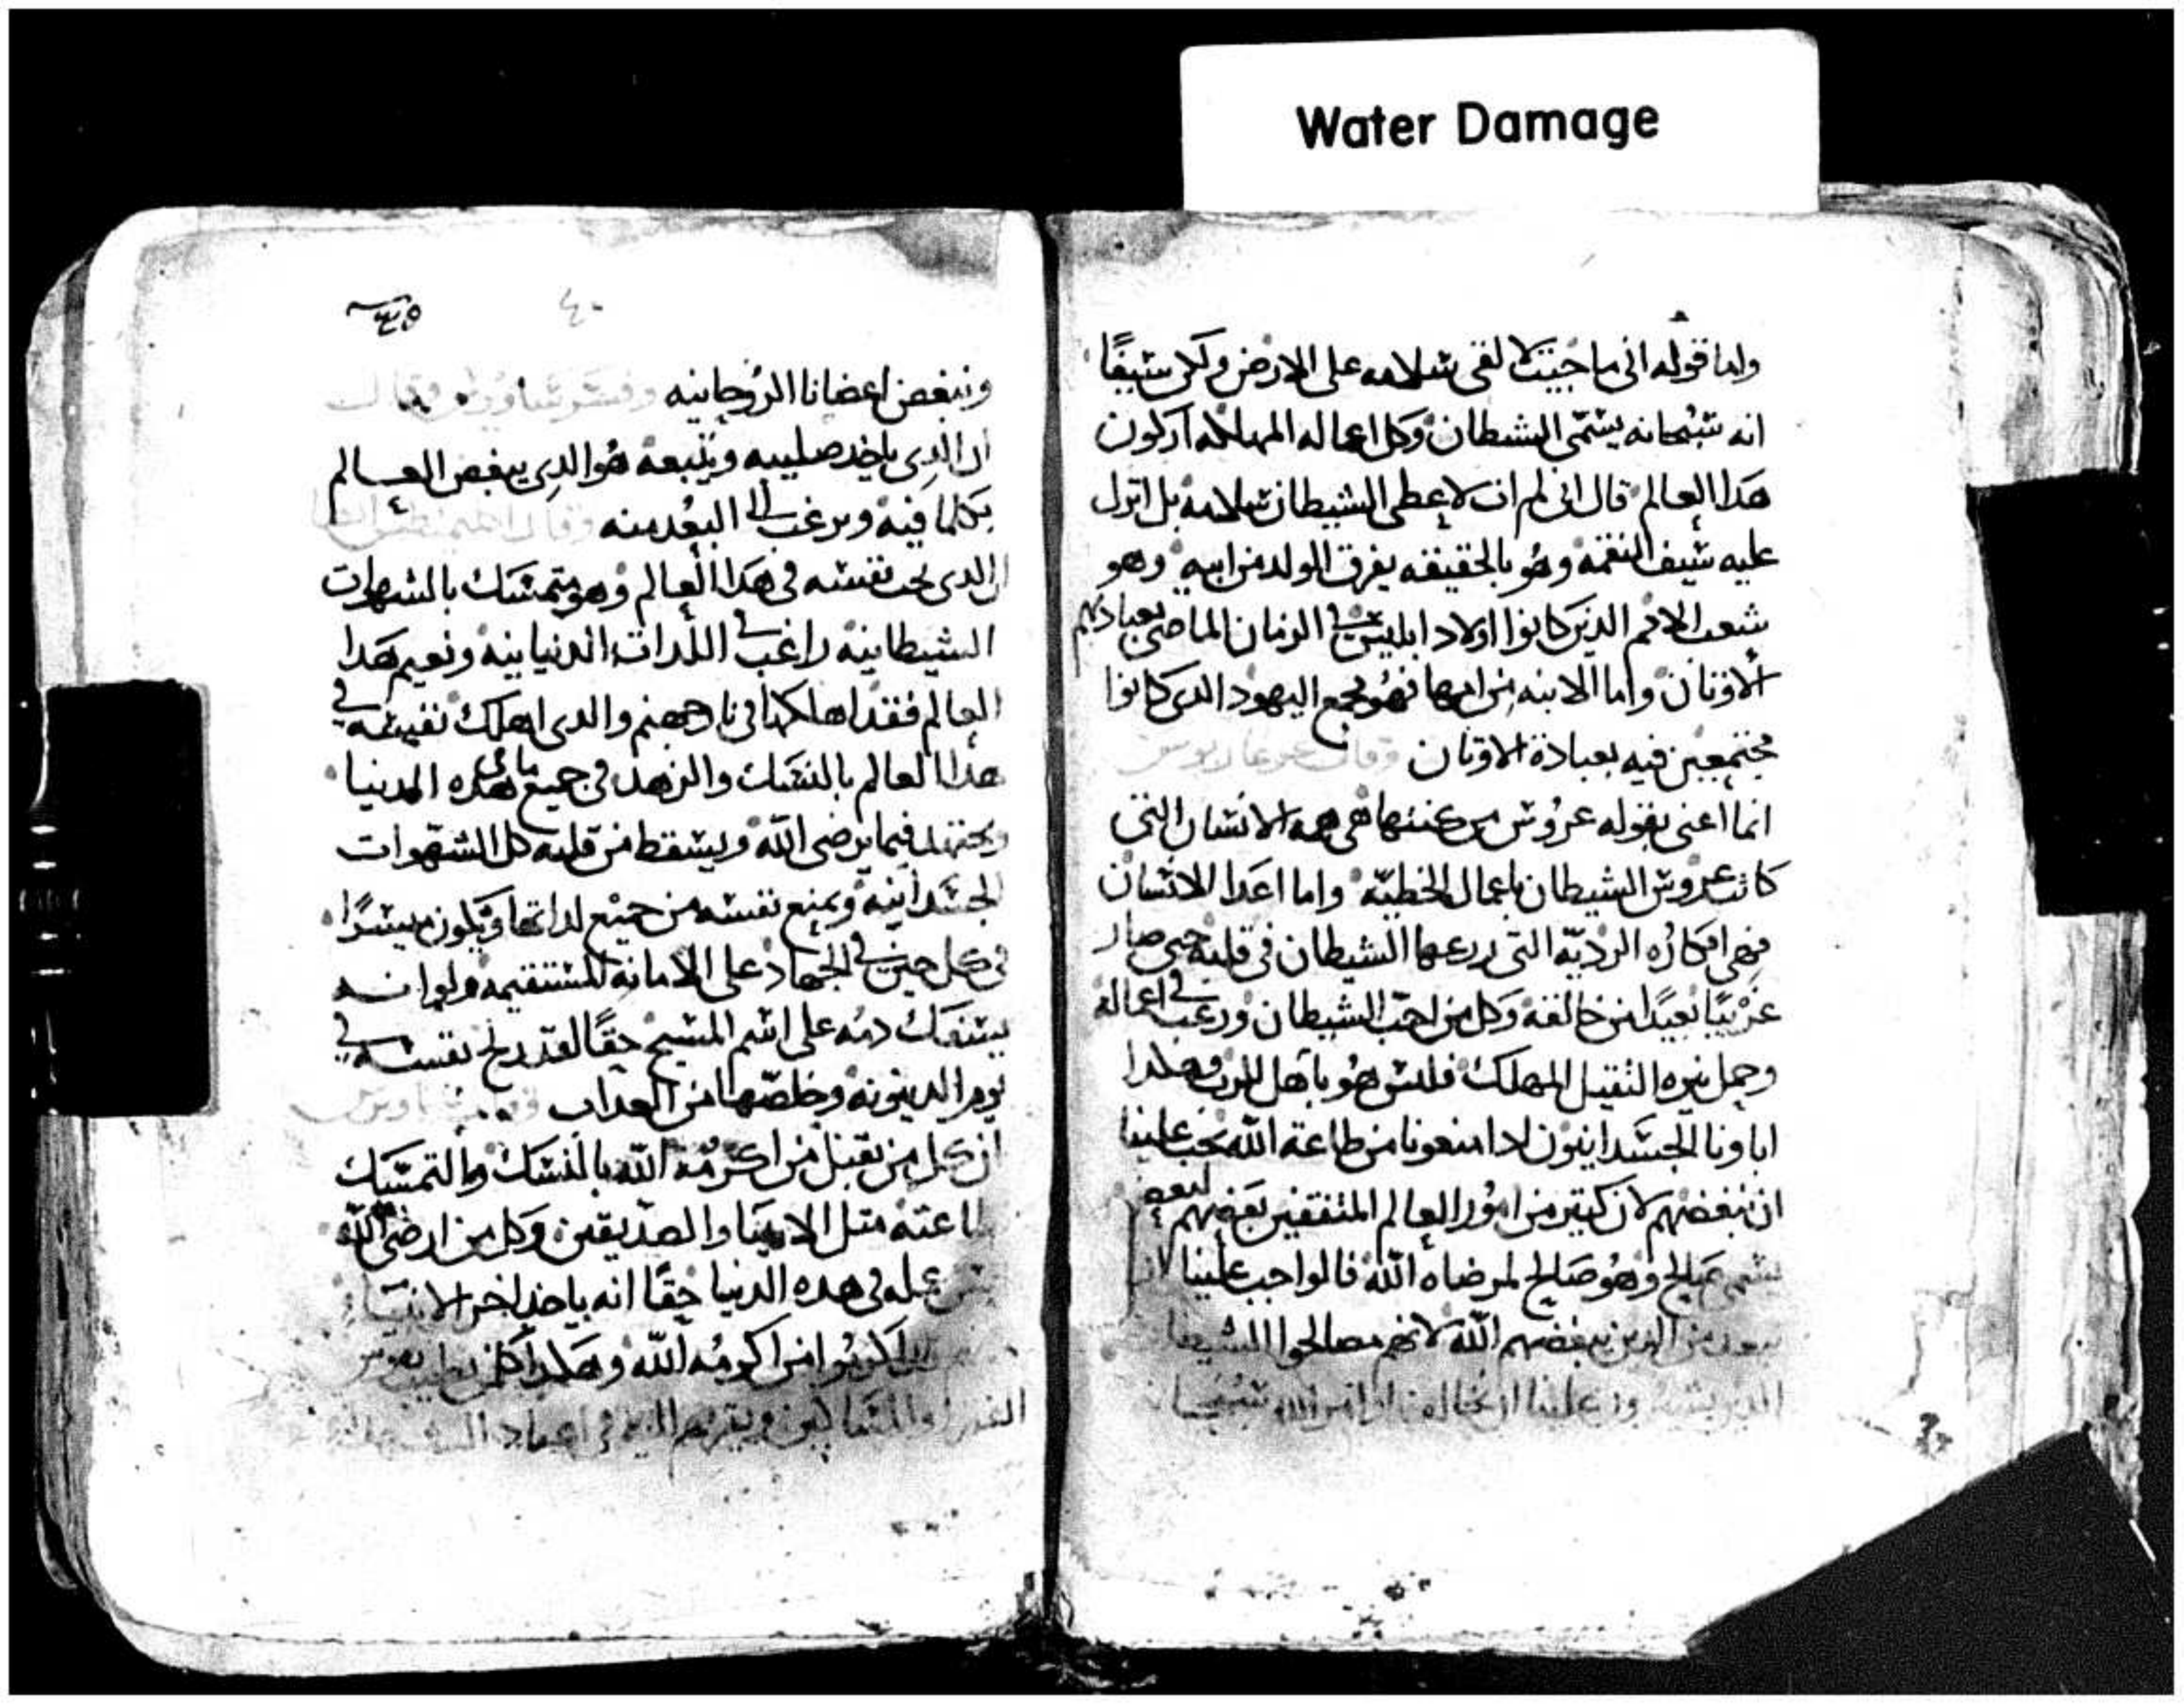 Water Damage
واما قوله انى ما جيت لالقى سلامه على الارض ولكن سيفًا
انه سبحانه يسمى الشيطان وكل اعماله المهلكه اركون
هدا العالم قال انى لم ات لاعطى الشيطان سلامه بل انزل
عليه سيف النقمه وهو بالحقيقه يفرق الولد من ابيه وهو
شعب الامم الدين كانوا اولاد ابليس فى الزمان الماضى بعبادتهم
الاوتان واما الابنه من امها فهو مجمع اليهود الدى كانوا
مجتمعين فيه بعبادة الاوتان وقال
انما اعنى بقوله عروس من هى الانسان التى
كانت عروس الشيطان باعمال الخطيه واما اعدا الانسان
فهى افكاره الرديه التى زرعها الشيطان فى قلبه حتى صار
غريبًا بعيدًا من خالقه وكل من احب الشيطان ورغب فى اعماله
وحمل نيره التقيل المهلك فليس هو باهل للرب وهكدا
اباونا الجسدانيون ادا منعونا من طاعة الله يجب علينا
ان نبغضهم لان كتير من امور العالم المتفقين بعضهم لبعض
يسمى صالح وهو صالح لمرضاه الله فالواجب علينا
الدين يبغضهم الله لانهم مصالحوا الشيطان
علينا ان
٤٠
ونبغض اعضانا الروحانيه وفسر وقال
ان الدى ياخد صليبه ويتبعه هو الدى يبغض العالم
بكلما فيه ويرغب الى البعد منه وقال
ان الدى يحب نفسه فى هدا العالم وهو متمسك بالشهوات
الشيطانيه راغب فى اللدات الدنيانيه ونعيم هدا
العالم فقد اهلكها فى نار جهنم والدى اهلك نفسه فى
هدا العالم بالنسك والزهد فى جميع ما فى هده الدنيا
فيما يرضى الله ويسقط من قلبه كل الشهوات
الجسدانيه ويمنع نفسه من جميع لداتها ويكون
فى كل حين فى الجهاد على الامانه المستقيمه ولو انه
يسفك دمه على اسم المسيح حقًا لقد ربح نفسه فى
يوم الدينونه وخلصها من العداب
ان كل من تقبل من اكرمه الله بالنسك والتمسك
بطاعته متل الانبيا والصديقين وكل من ارضى الله
عمله فى هده الدنيا حقًا انه ياخد اجر الانبيا
اكرمه الله وهكدا